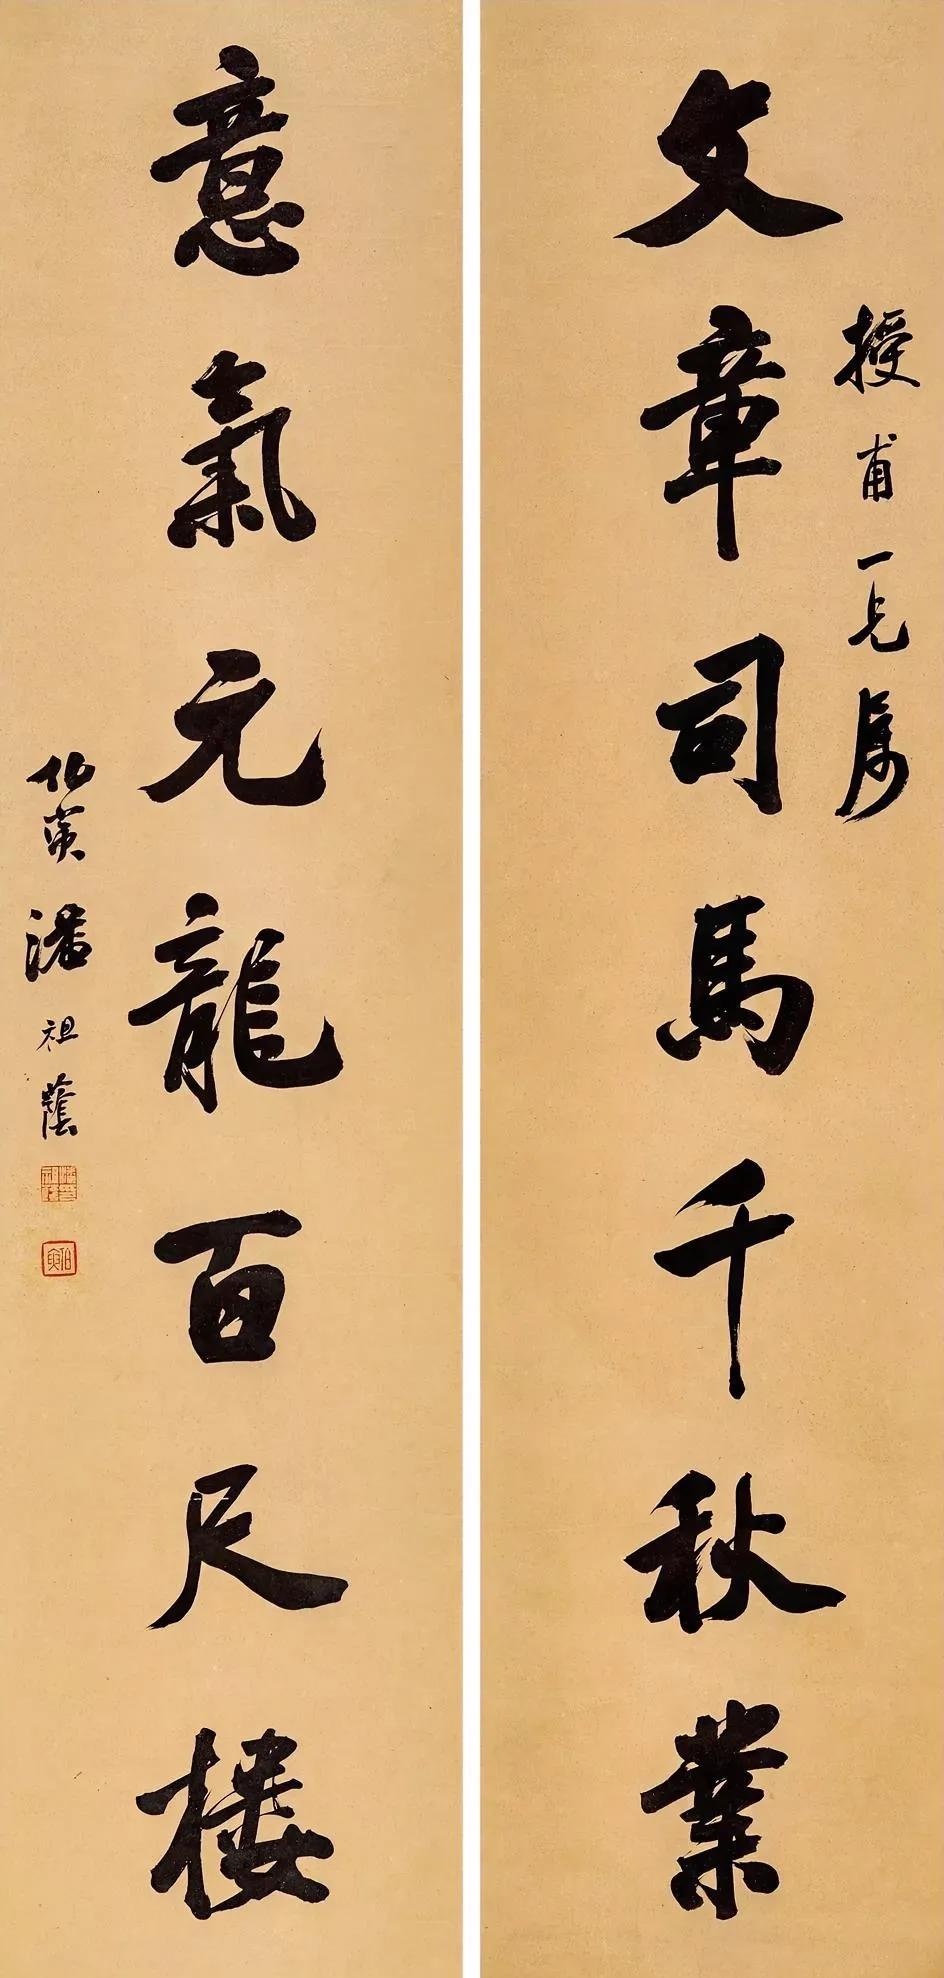 授甫一兄屬
文章司馬千秋業
意氣元龍百尺樓
伯寅潘祖蔭
伯寅